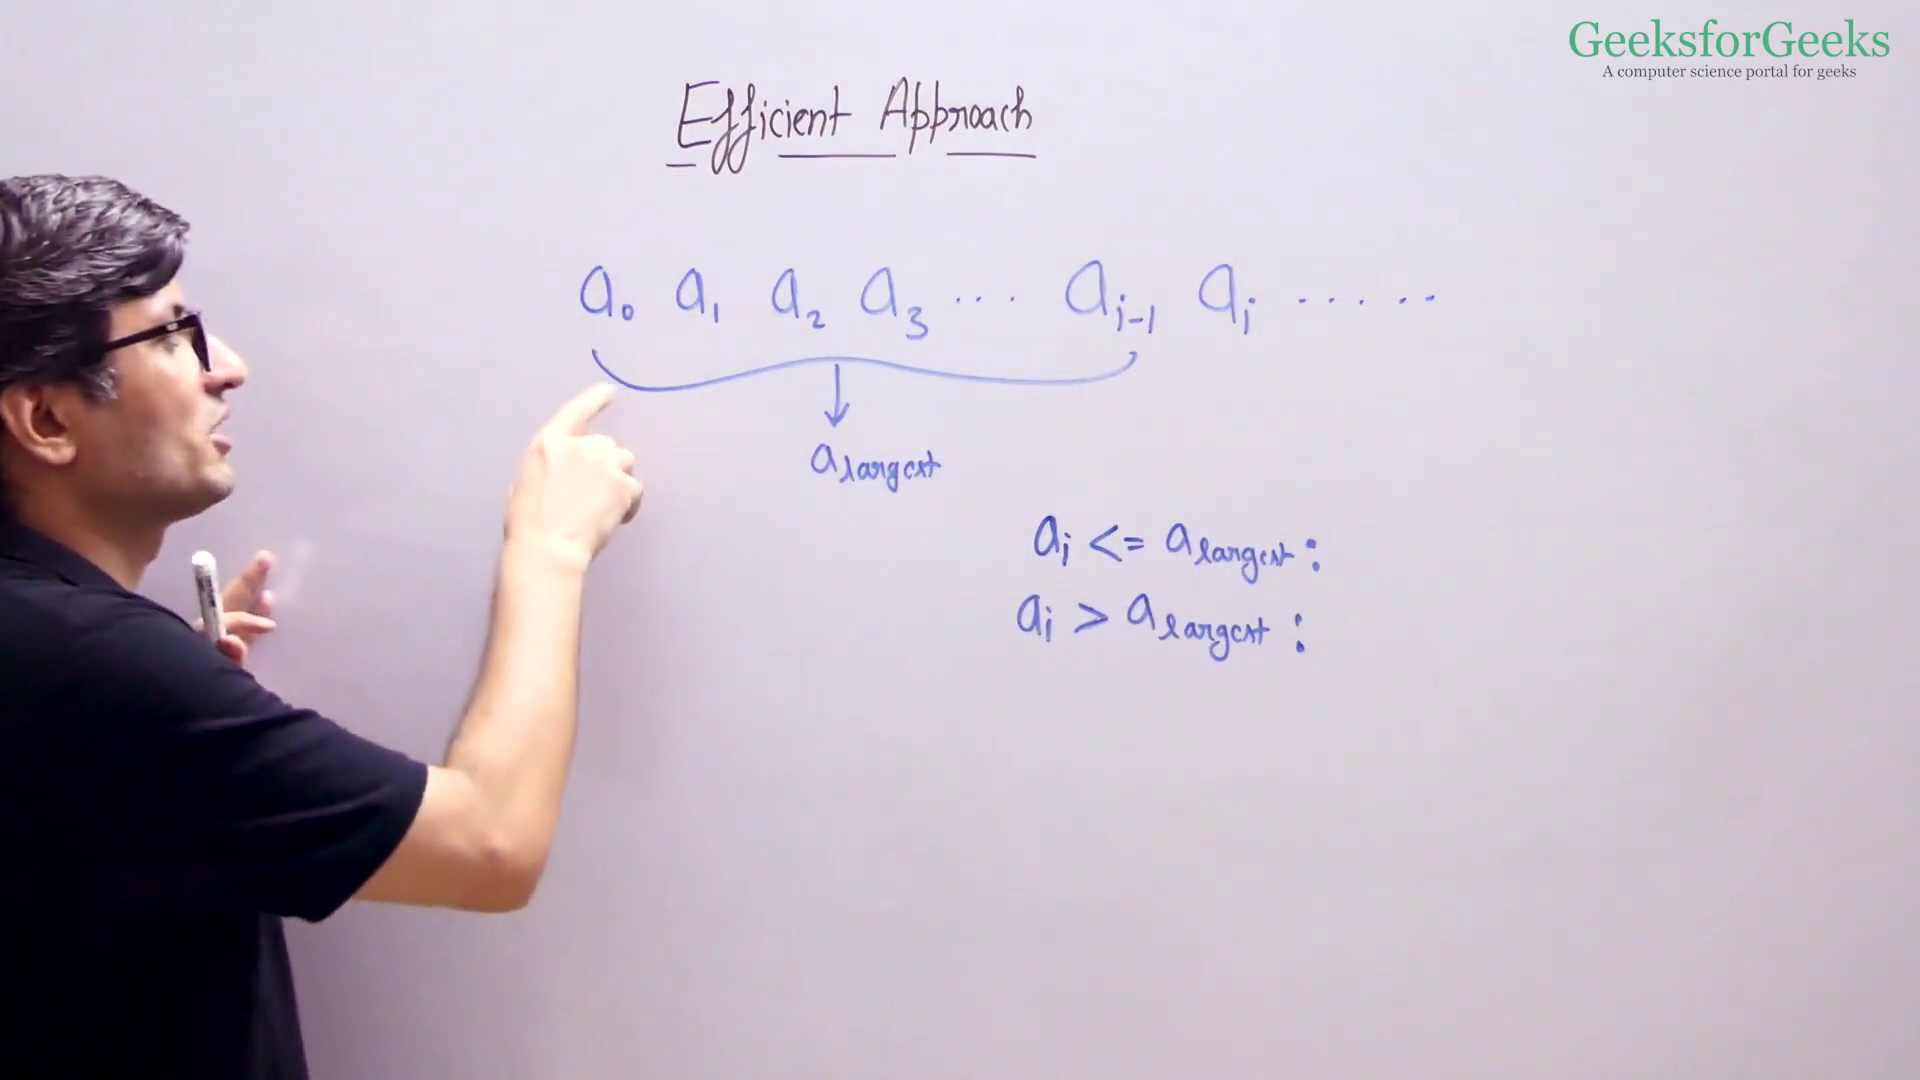 GeeksforGeeks
A computer science portal for geeks
Efficient Approach
a₀ a₁ a₂ a₃ ... aᵢ₋₁ aᵢ ......
a largest
aᵢ <= a largest :
aᵢ > a largest :